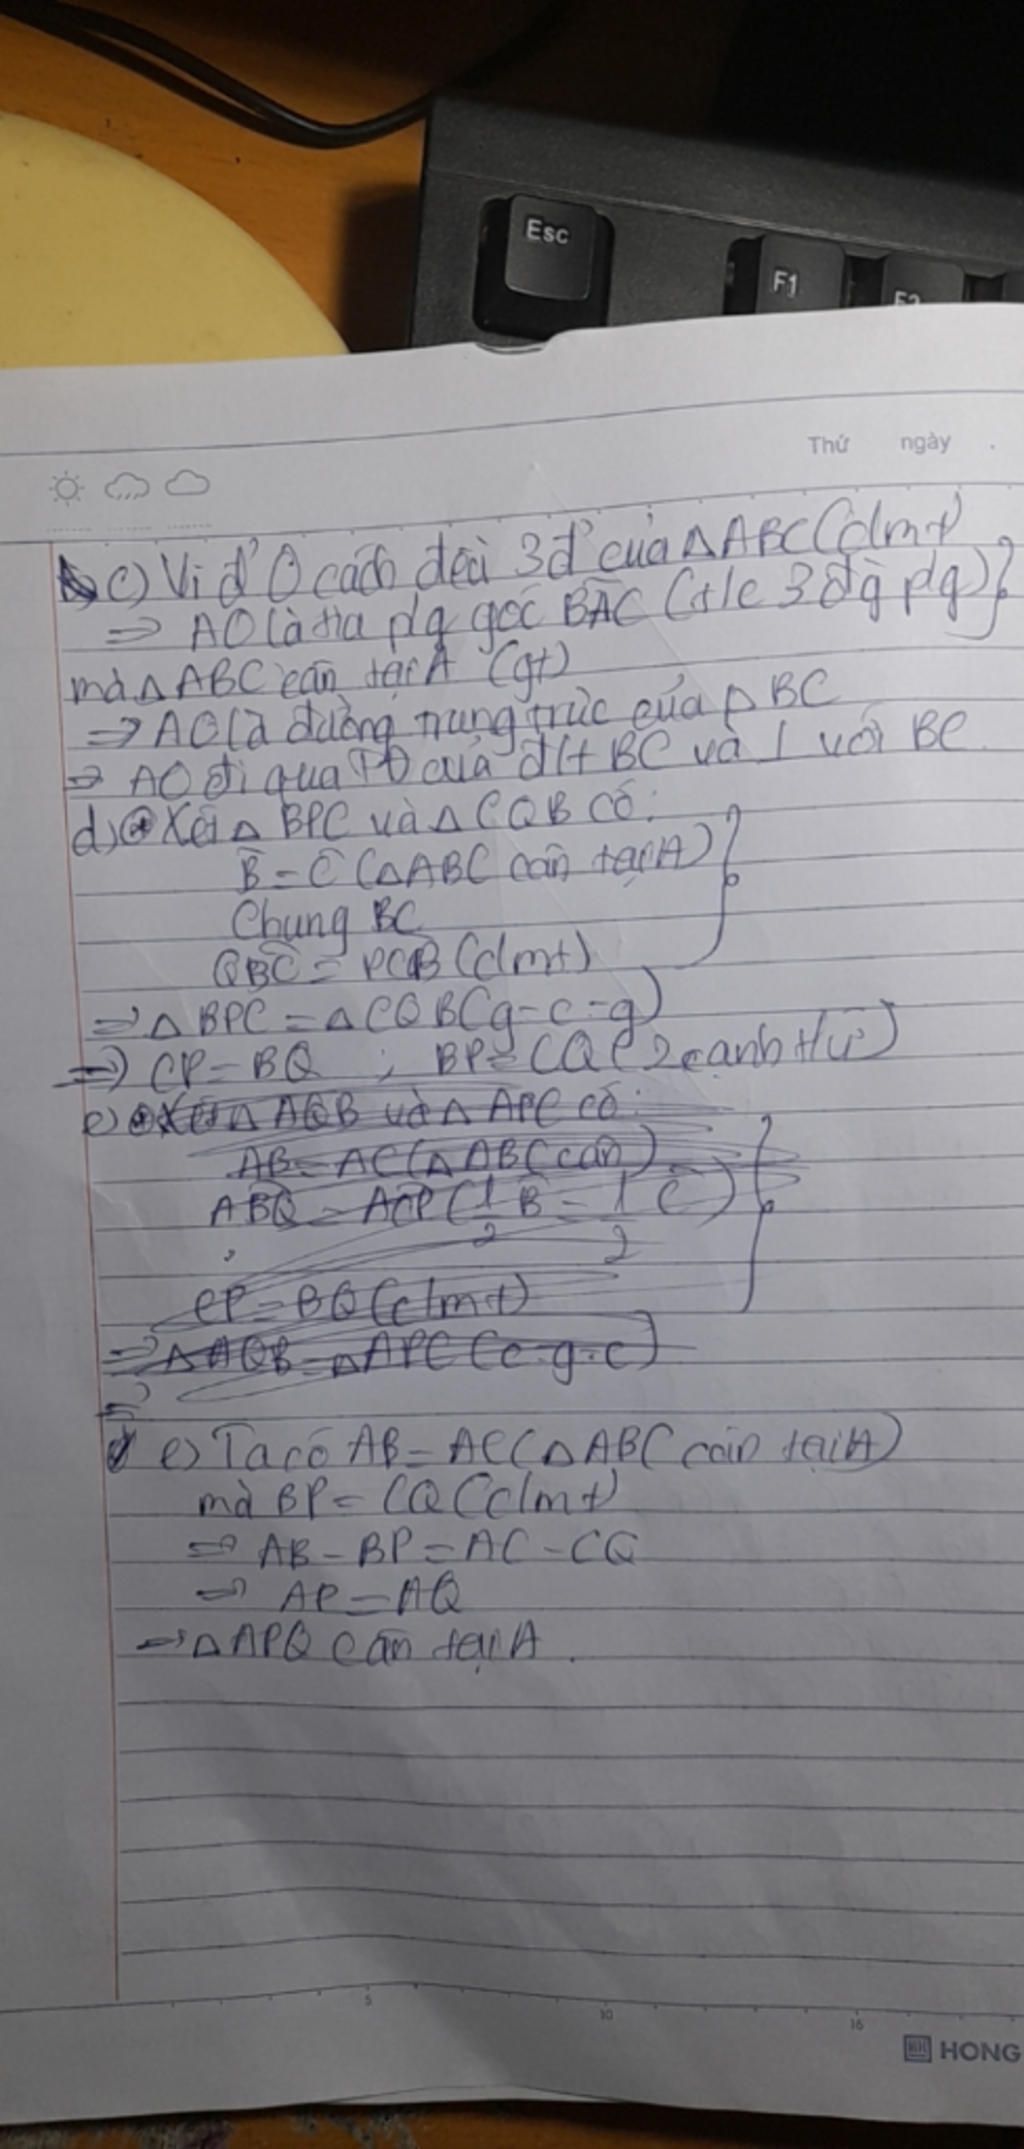 Esc
F1
F2
Thứ ngày .
c) Vì đ' O cách đều 3đ' của △ABC (clmt)
⇒ AO là tia pg góc BAC (t/c 3 đg pg)
mà △ABC cân tại A (gt)
⇒ AO là đường trung trực của △BC
⇒ AO đi qua TĐ của đ/t BC và ⊥ với BC
d) Xét △ BPC và △ CQB có:
B̂ = Ĉ (△ABC cân tại A)
Chung BC
QBC = PCB (clmt)
⇒ △ BPC = △ CQB (g-c-g)
⇒ CP = BQ ; BP = CQ (2 cạnh t/ư)
e) Xét △ AQB và △ APC có:
AB = AC (△ ABC cân)
ABQ = ACP (1/2 B̂ = 1/2 Ĉ)
CP = BQ (clmt)
⇒ △AQB = △APC (c-g-c)
⇒
e) Ta có AB = AC (△ ABC cân tại A)
mà BP = CQ (clmt)
⇒ AB - BP = AC - CQ
⇒ AP = AQ
⇒ △APQ cân tại A.
5 10 15
HONG